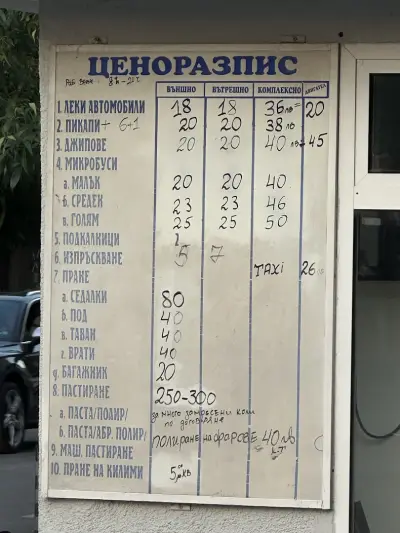 ЦЕНОРАЗПИС
ВЪНШНО ВЪТРЕШНО КОМПЛЕКСНО ДВИГАТЕЛ
1. ЛЕКИ АВТОМОБИЛИ 18 18 36лв= 20
2. ПИКАПИ + 6+1 20 20 38 лв
3. ДЖИПОВЕ 20 20 40 лв= 45
4. МИКРОБУСИ
а. МАЛЪК 20 20 40
б. СРЕДЕН 23 23 46
в. ГОЛЯМ 25 25 50
5. ПОДКАЛНИЦИ
6. ИЗПРЪСКВАНЕ 5 7
7. ПРАНЕ TAXi 26
а. СЕДАЛКИ 80
б. ПОД 40
в. ТАВАН 40
г. ВРАТИ 40
д. БАГАЖНИК 20
8. ПАСТИРАНЕ 250-300
а. ПАСТА/ПОЛИР/ за много замърсени коли
по договаряне
б. ПАСТА/АБР. ПОЛИР/ ПОЛИРАНЕ НА ФАРОВЕ 40 лв
9. МАШ. ПАСТИРАНЕ
10. ПРАНЕ НА КИЛИМИ 5 КВ